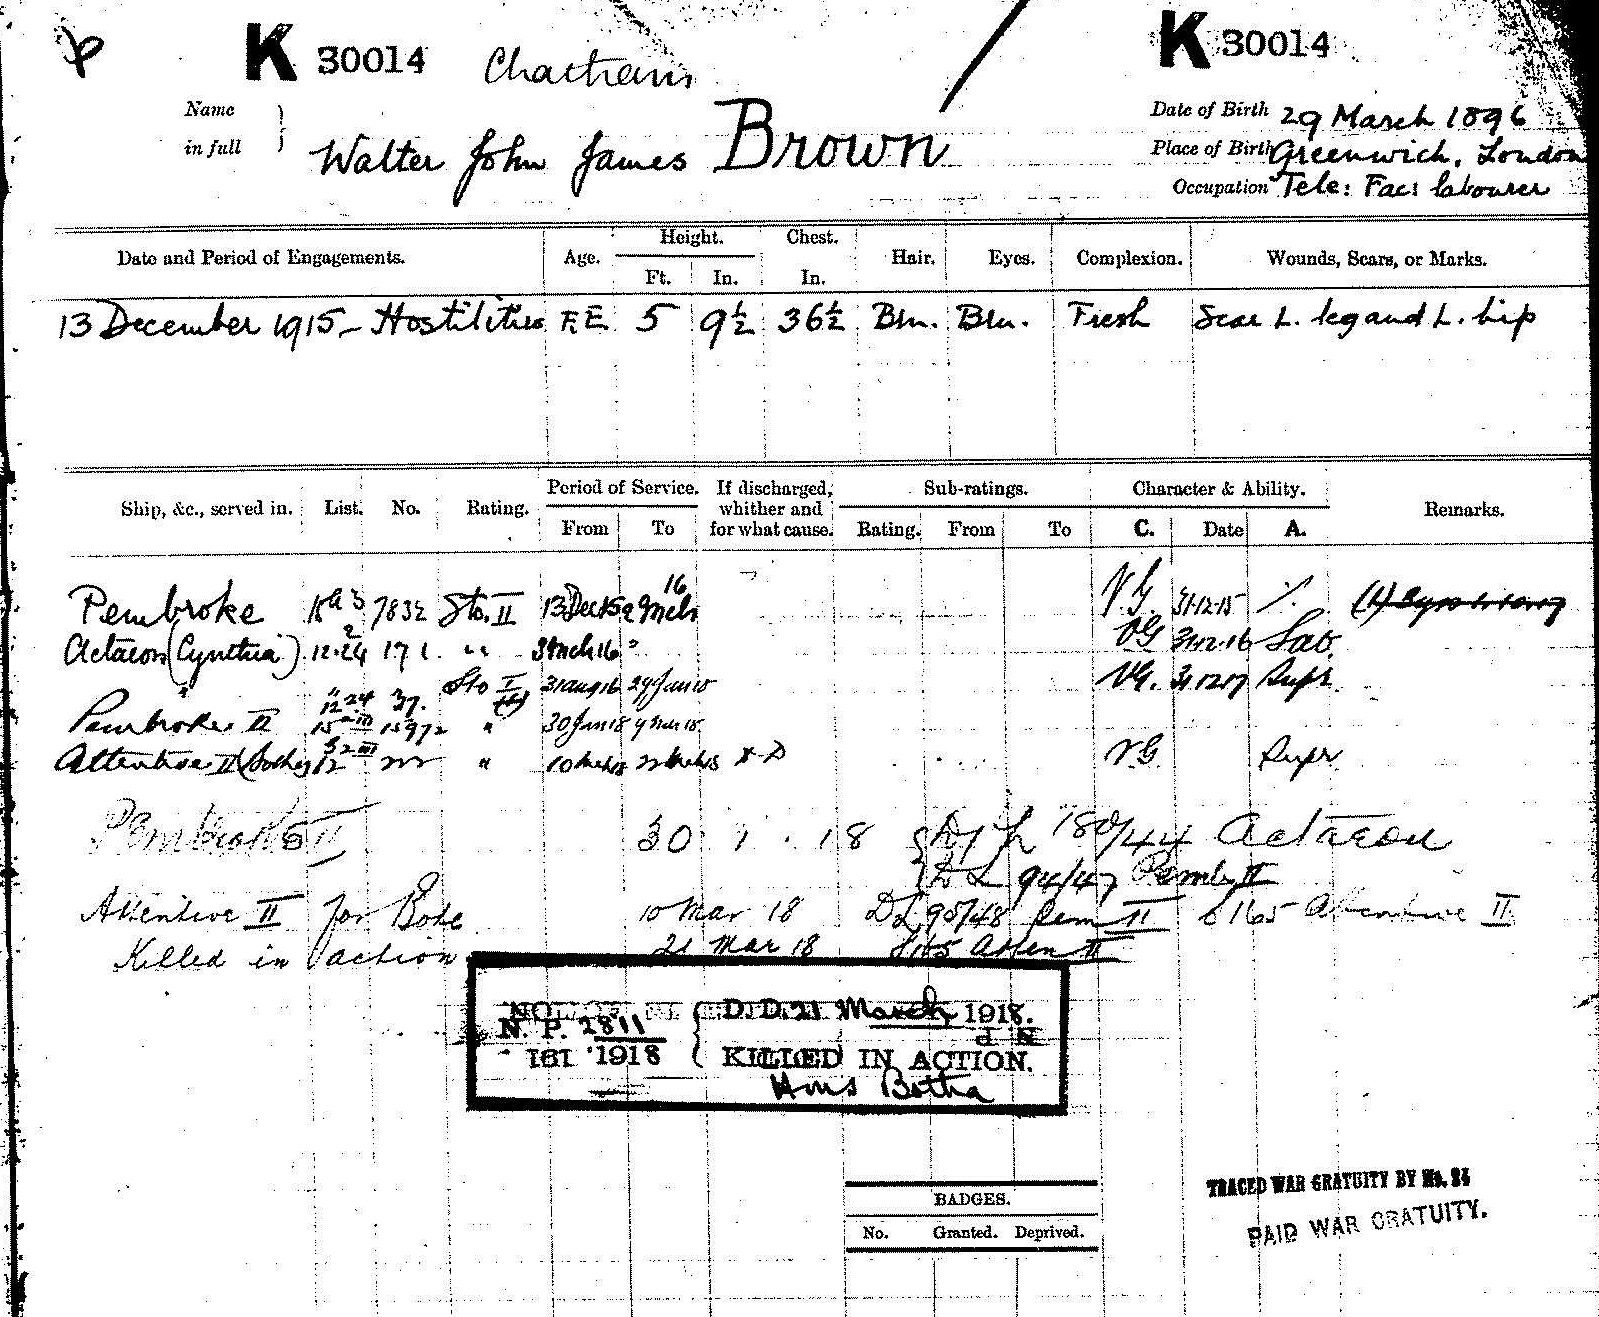 K 30014 Chatham K 30014
Name in full Walter John James Brown
Date of Birth 29 March 1896
Place of Birth Greenwich, London
Occupation Tele: Fac: labourer
Date and Period of Engagements. Age. Height. Ft. In. Chest. In. Hair. Eyes. Complexion. Wounds, Scars, or Marks.
13 December 1915 - Hostilities 5 9½ 36½ Brn. Brn. Fresh Scar L. leg and L. hip
Ship, &c., served in. List. No. Rating. Period of Service. From To If discharged, whither and for what cause. Sub-ratings. Rating. From To Character & Ability. C. Date A. Remarks.
Pembroke 7832 Sto. II 13 Dec 15 2 Mch 16 V.G. 31.12.15
Actaeon (Cynthia) 12.24 171 " 3 Mch 16 VG 31.12.16 Sat.
" 12 24 37. Sto I 31 Aug 16 29 Jan 18 VG. 31 12 17 Supr
Pembroke II 15972 " 30 Jan 18 9 Mar 18
Attentive II 12 " 10 Mch 18 21 Mch 18 V.G. Supr
Pembroke II 30 1 . 18 Actaeon
DL 94/47 Pemb II
Attentive II for 10 Mar 18 DL 98/48 Pem II 165 Attentive II
Killed in action 21 Mar 18 165 Atten II
N. P. 2811 D.D. 21 March 1918.
161 1918 KILLED IN ACTION.
Hms Botha
TRACED WAR GRATUITY BY No. 24
PAID WAR GRATUITY.
BADGES.
No. Granted. Deprived.